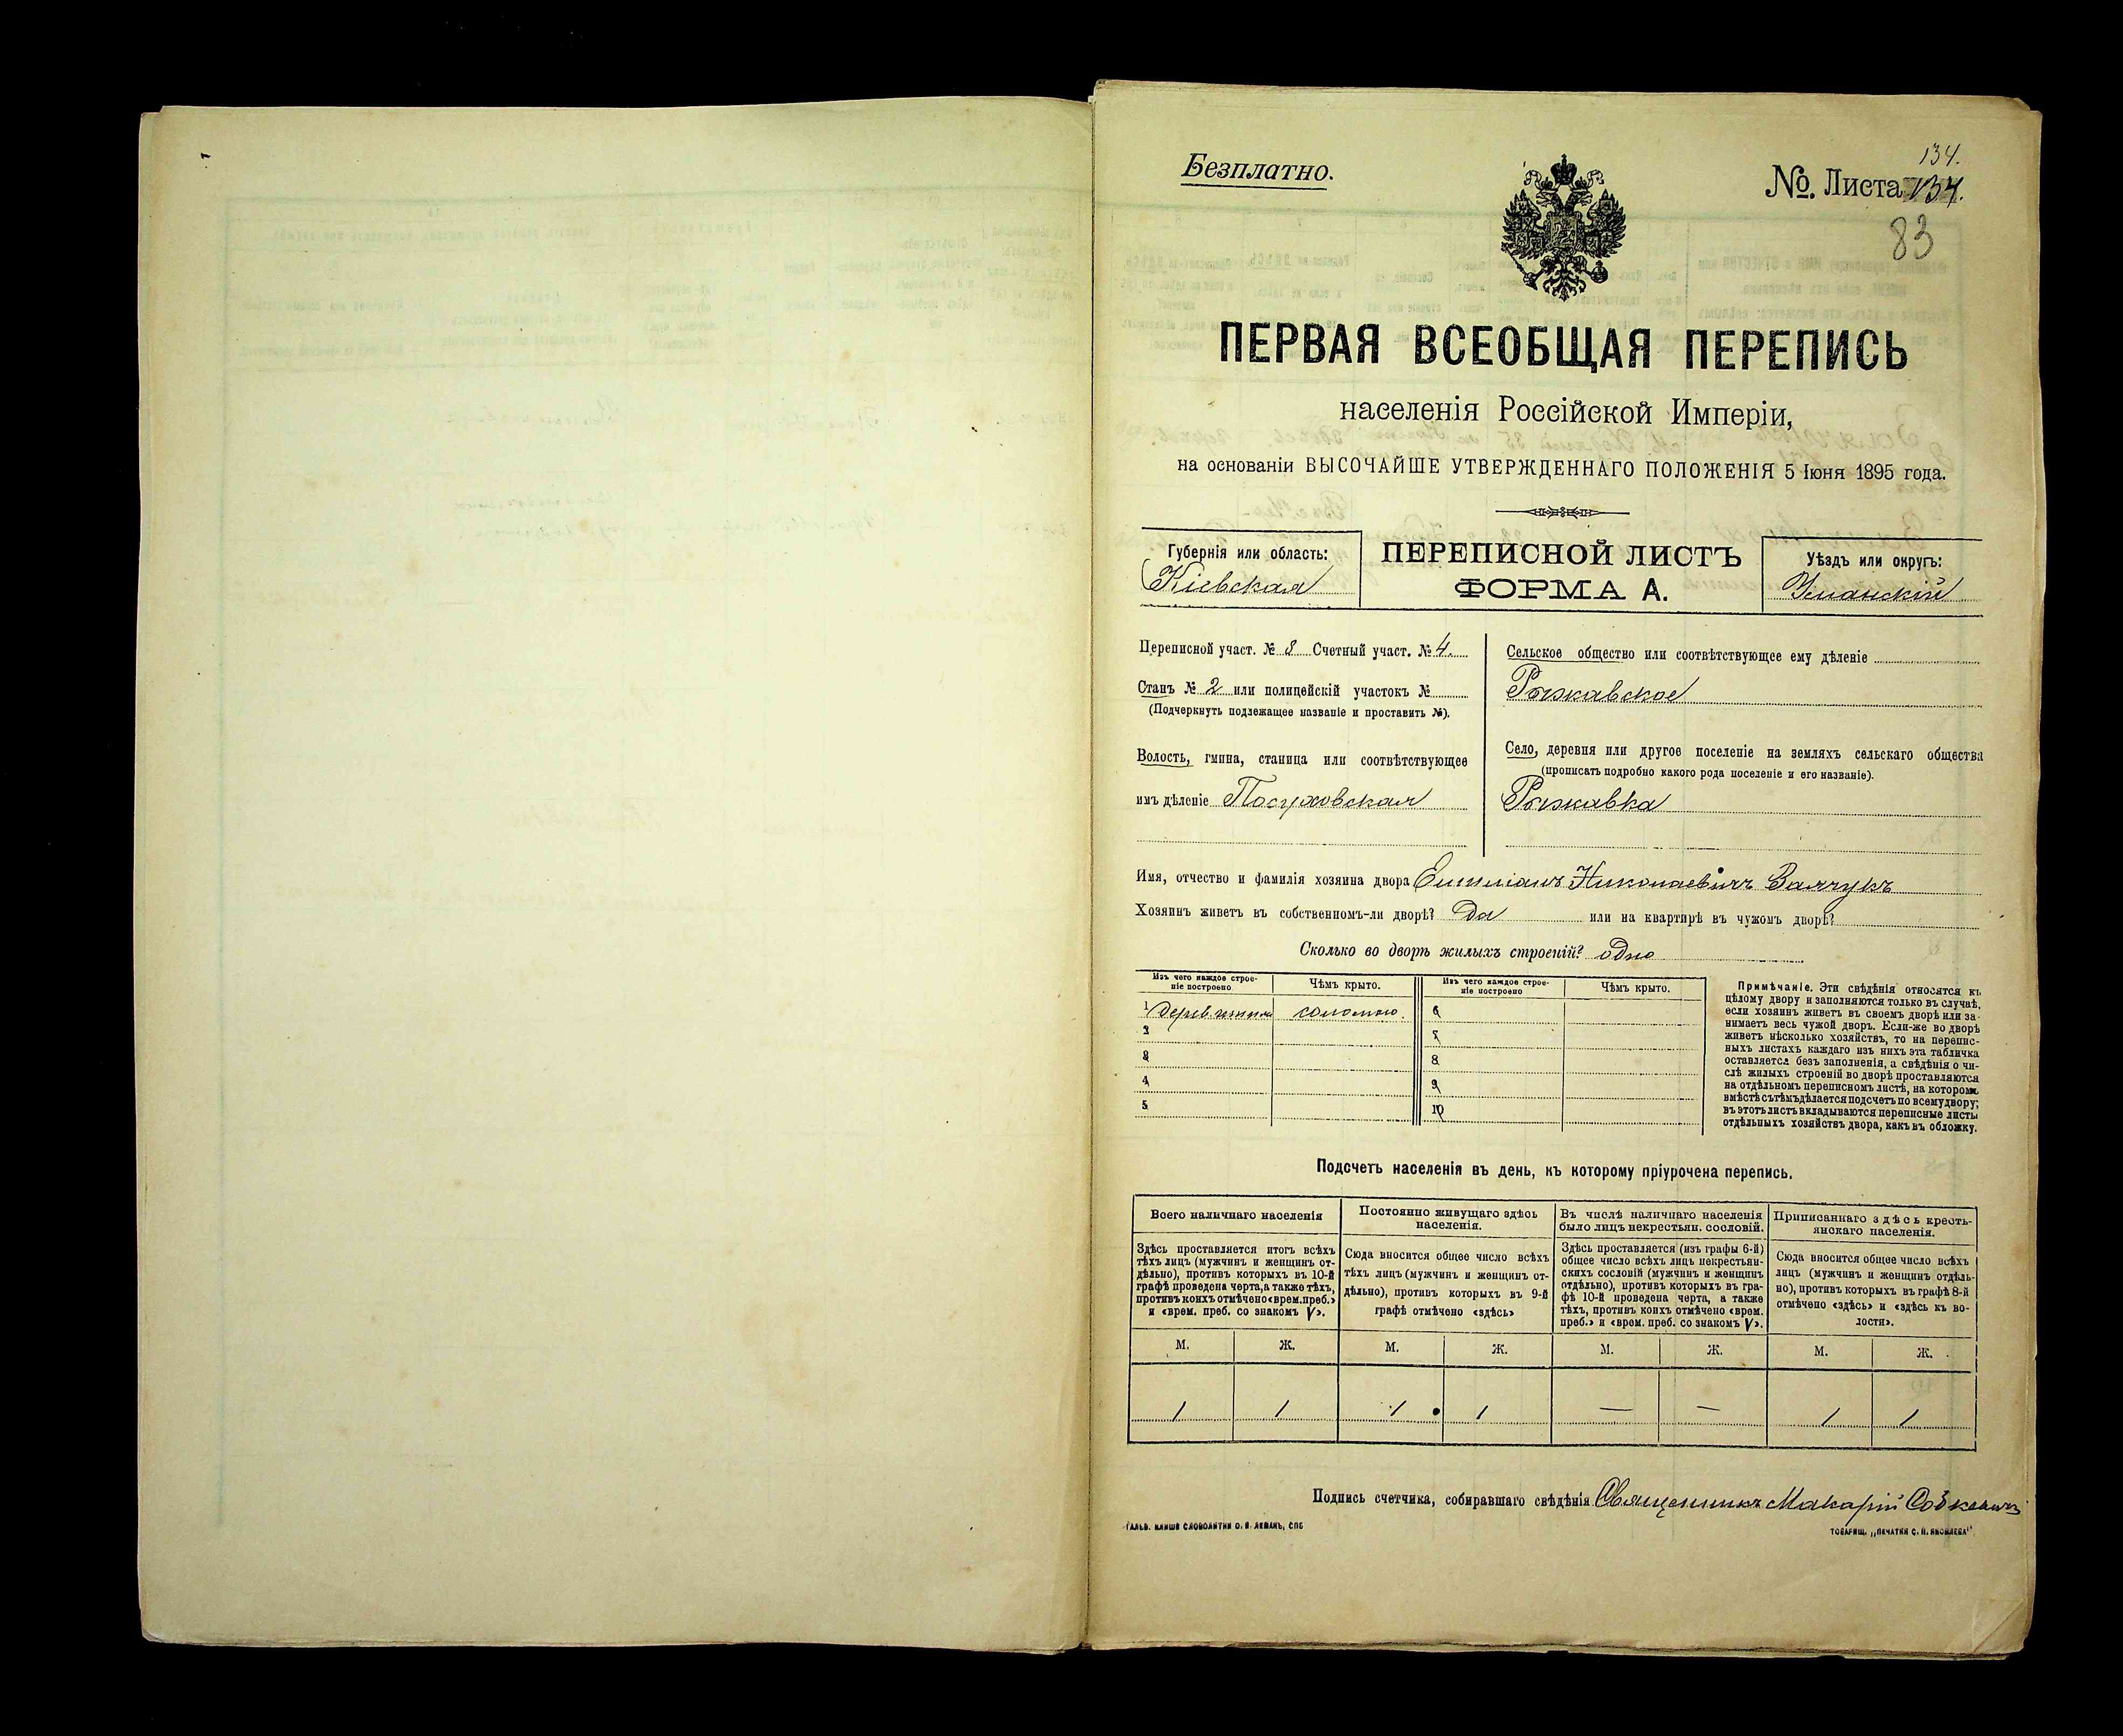 Безплатно.
134.
№. Листа 134.
83
ПЕРВАЯ ВСЕОБЩАЯ ПЕРЕПИСЬ
населенія Россійской Имперіи,
на основаніи ВЫСОЧАЙШЕ УТВЕРЖДЕННАГО ПОЛОЖЕНІЯ 5 Іюня 1895 года.
Губернія или область:
Кіевская
ПЕРЕПИСНОЙ ЛИСТЪ
ФОРМА А.
Уѣздъ или округъ:
Уманскій
Переписной участ. № 8 Счетный участ. № 4.
Станъ № 2 или полицейскій участокъ №
(Подчеркнуть подлежащее названіе и проставить №).
Волость, гмина, станица или соотвѣтствующее
имъ дѣленіе Посуховская
Сельское общество или соотвѣтствующее ему дѣленіе
Рыжавское
Село, деревня или другое поселеніе на земляхъ сельскаго общества
(прописать подробно какого рода поселеніе и его названіе).
Рыжавка
Имя, отчество и фамилія хозяина двора Николаевичъ Заячукъ
Хозяинъ живетъ въ собственномъ-ли дворѣ? Да или на квартирѣ въ чужомъ дворѣ?
Сколько во дворѣ жилыхъ строеній? одно
Изъ чего каждое строе-
ніе построено
Чѣмъ крыто.
Изъ чего каждое строе-
ніе построено
Чѣмъ крыто.
1 соломою. 6
2 7
3 8
4 9
5 10
Примѣчаніе. Эти свѣдѣнія относятся къ
цѣлому двору и заполняются только въ случаѣ,
если хозяинъ живетъ въ своемъ дворѣ или за-
нимаетъ весь чужой дворъ. Если-же во дворѣ
живетъ нѣсколько хозяйствъ, то на перепис-
ныхъ листахъ каждаго изъ нихъ эта табличка
оставляется безъ заполненія, а свѣдѣнія о чи-
слѣ жилыхъ строеній во дворѣ проставляются
на отдѣльномъ переписномъ листѣ, на которомъ
вмѣстѣ съ тѣмъ дѣлается подсчетъ по всему двору;
въ этотъ листъ вкладываются переписные листы
отдѣльныхъ хозяйствъ двора, какъ въ обложку.
Подсчетъ населенія въ день, къ которому пріурочена перепись.
Всего наличнаго населенія
Здѣсь проставляется итогъ всѣхъ
тѣхъ лицъ (мужчинъ и женщинъ от-
дѣльно), противъ которыхъ въ 10-й
графѣ проведена черта, а также тѣхъ,
противъ коихъ отмѣчено «врем. преб.»
и «врем. преб. со знакомъ V».
Постоянно живущаго здѣсь
населенія.
Сюда вносится общее число всѣхъ
тѣхъ лицъ (мужчинъ и женщинъ от-
дѣльно), противъ которыхъ въ 9-й
графѣ отмѣчено «здѣсь»
Въ числѣ наличнаго населенія
было лицъ некрестьян. сословій.
Здѣсь проставляется (изъ графы 6-й)
общее число всѣхъ лицъ некрестьян-
скихъ сословій (мужчинъ и женщинъ
отдѣльно), противъ которыхъ въ гра-
фѣ 10-й проведена черта, а также
тѣхъ, противъ коихъ отмѣчено «врем.
преб.» и «врем. преб. со знакомъ V».
Приписаннаго здѣсь кресть-
янскаго населенія.
Сюда вносится общее число всѣхъ
лицъ (мужчинъ и женщинъ отдѣль-
но), противъ которыхъ въ графѣ 8-й
отмѣчено «здѣсь» и «здѣсь къ во-
лости».
М. Ж. М. Ж. М. Ж. М. Ж.
1 1 1 1 — — 1 1
Подпись счетчика, собиравшаго свѣдѣнія Священникъ Макарій
ГАЛЬВ. КЛИШЕ СЛОВОЛИТНИ О. И. ЛЕМАНЪ, СПБ
ТОВАРИЩ. „ПЕЧАТНЯ С. П. ЯКОВЛЕВА"